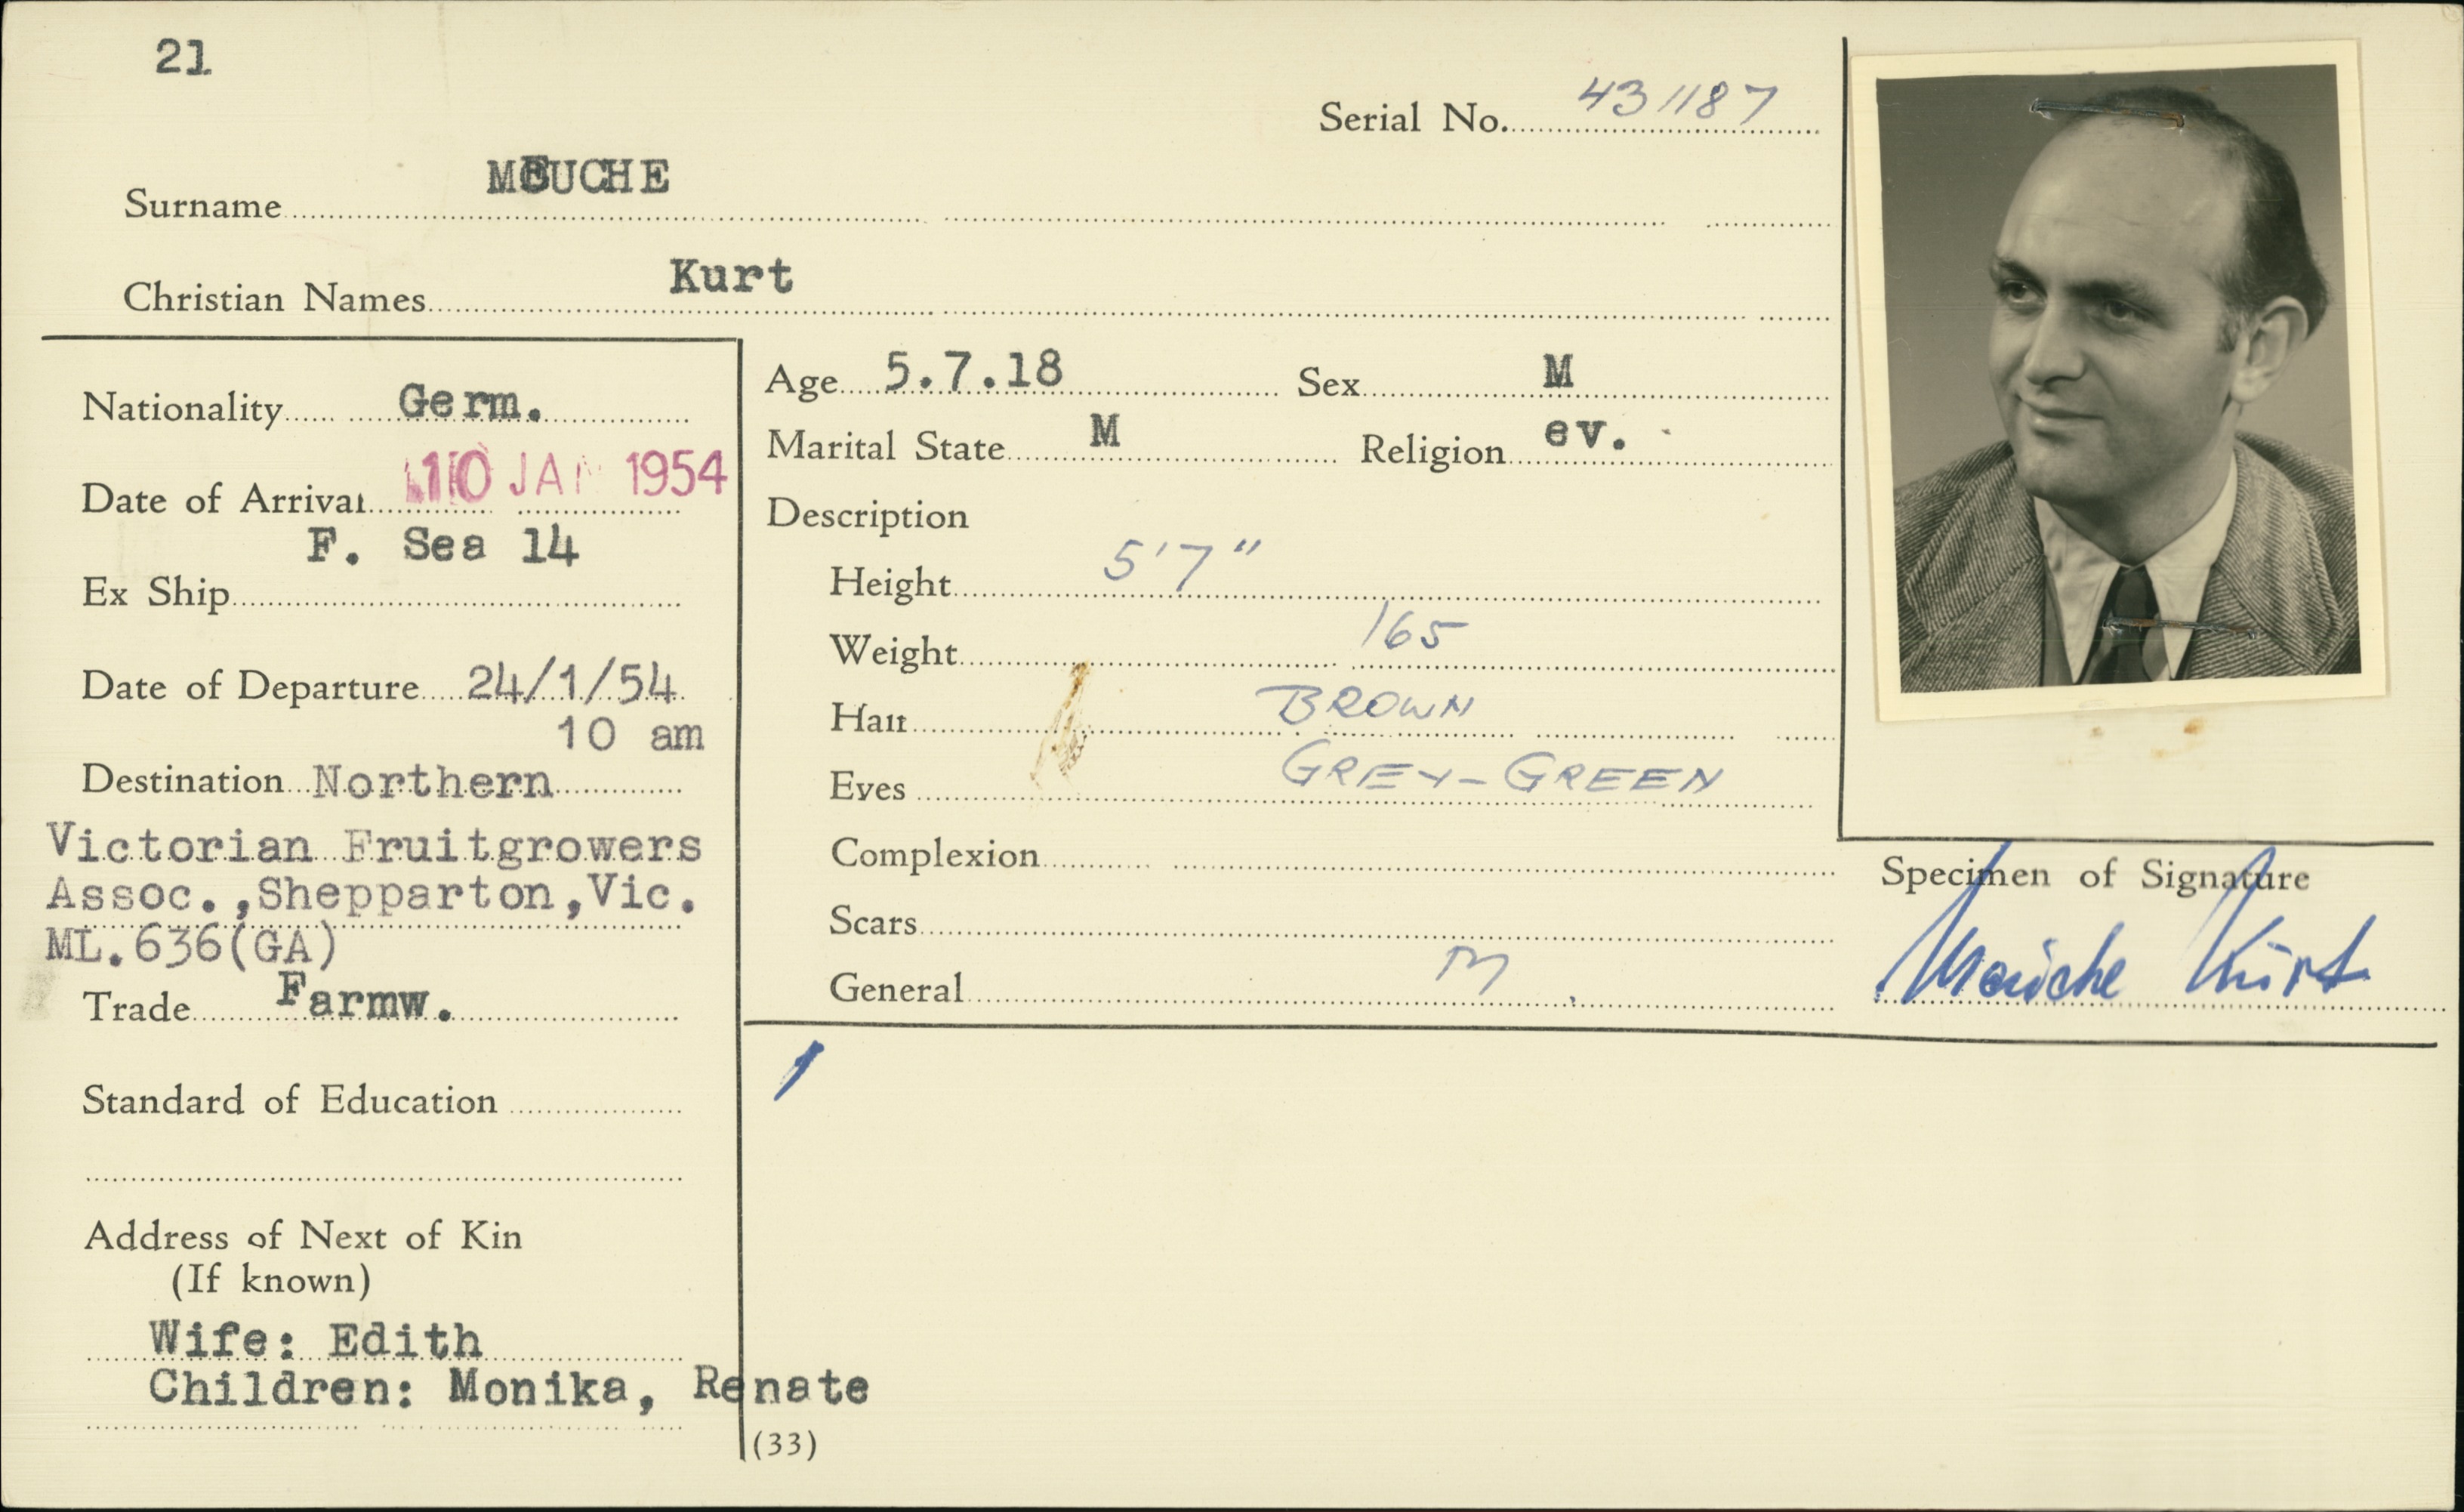 21
Serial No. 431187
Surname MEUCHE
Christian Names Kurt
Nationality Germ.
Date of Arrival 10 JAN 1954
F. Sea 14
Ex Ship
Date of Departure 24/1/54
10 am
Destination Northern
Victorian Fruitgrowers
Assoc.,Shepparton,Vic.
ML.636(GA)
Trade Farmw.
Standard of Education
Address of Next of Kin
(If known)
Wife: Edith
Children: Monika, Renate
(33)
Age 5.7.18 Sex M
Marital State M Religion ev.
Description
Height 5'7"
Weight 165
Hair BROWN
Eyes GREY-GREEN
Complexion
Scars
General M
Specimen of Signature
Meuche Kurt